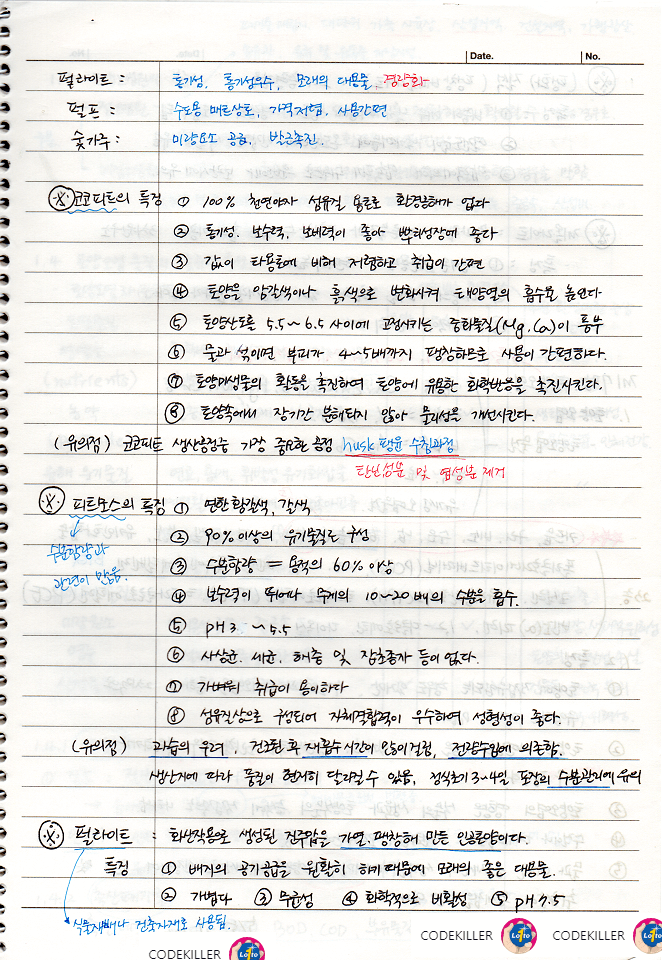 Date. No.
펄라이트 : 통기성, 통기성우수, 모래의 대용물, 경량화
펄프 : 수도용 매트상토, 가격저렴, 사용간편
숯가루 : 미량요소 공급, 발근촉진.
※ 코코피트의 특징 ① 100% 천연야자 섬유질 용토로 환경공해가 없다
② 통기성, 보수력, 보비력이 좋아 뿌리성장에 좋다
③ 값이 타용토에 비해 저렴하고 취급이 간편
④ 토양을 암갈색이나 흑색으로 변화시켜 태양열의 흡수율 높인다
⑤ 토양산도를 5.5~6.5 사이에 고정시키는 중화물질(Mg, Ca)이 풍부
⑥ 물과 섞이면 부피가 4~5배까지 팽창하므로 사용이 간편하다.
⑦ 토양미생물의 활동을 촉진하여 토양에 유용한 화학반응을 촉진시킨다.
⑧ 토양속에서 장기간 분해되지 않아 물리성을 개선시킨다.
(유의점) 코코피트 생산공정중 가장 중요한 공정 husk 팽윤 수침과정
탄닌성분 및 염성분 제거
※ 피트모스의 특징 ① 연한황갈색, 갈색
수분함량과
관련이 많음.
② 90% 이상의 유기물질로 구성
③ 수분함량 = 용적의 60% 이상
④ 보수력이 뛰어나 무게의 10~20배의 수분을 흡수.
⑤ pH 3. ~5.5
⑥ 사상균. 세균, 해충 및 잡초종자 등이 없다.
⑦ 가벼워 취급이 용이하다
⑧ 섬유질상으로 구성되어 자체결합력이 우수하여 성형성이 좋다.
(유의점) 과습의 우려, 건조된 후 재흡수시간이 많이걸림, 전량수입에 의존함.
생산지에 따라 품질이 현저히 달라질 수 있음, 정식초기 3~4일 포장의 수분관리에 유의
※ 펄라이트 : 화산작용으로 생성된 진주암을 가열.팽창해 만든 인공토양이다.
특징 ① 배지의 공기공급을 원활히 하기 때문에 모래의 좋은 대용물.
② 가볍다 ③ 무균성 ④ 화학적으로 비활성 ⑤ pH 7.5
식물재배나 건축자재로 사용됨.
CODEKILLER Lotto CODEKILLER Lotto
CODEKILLER Lotto